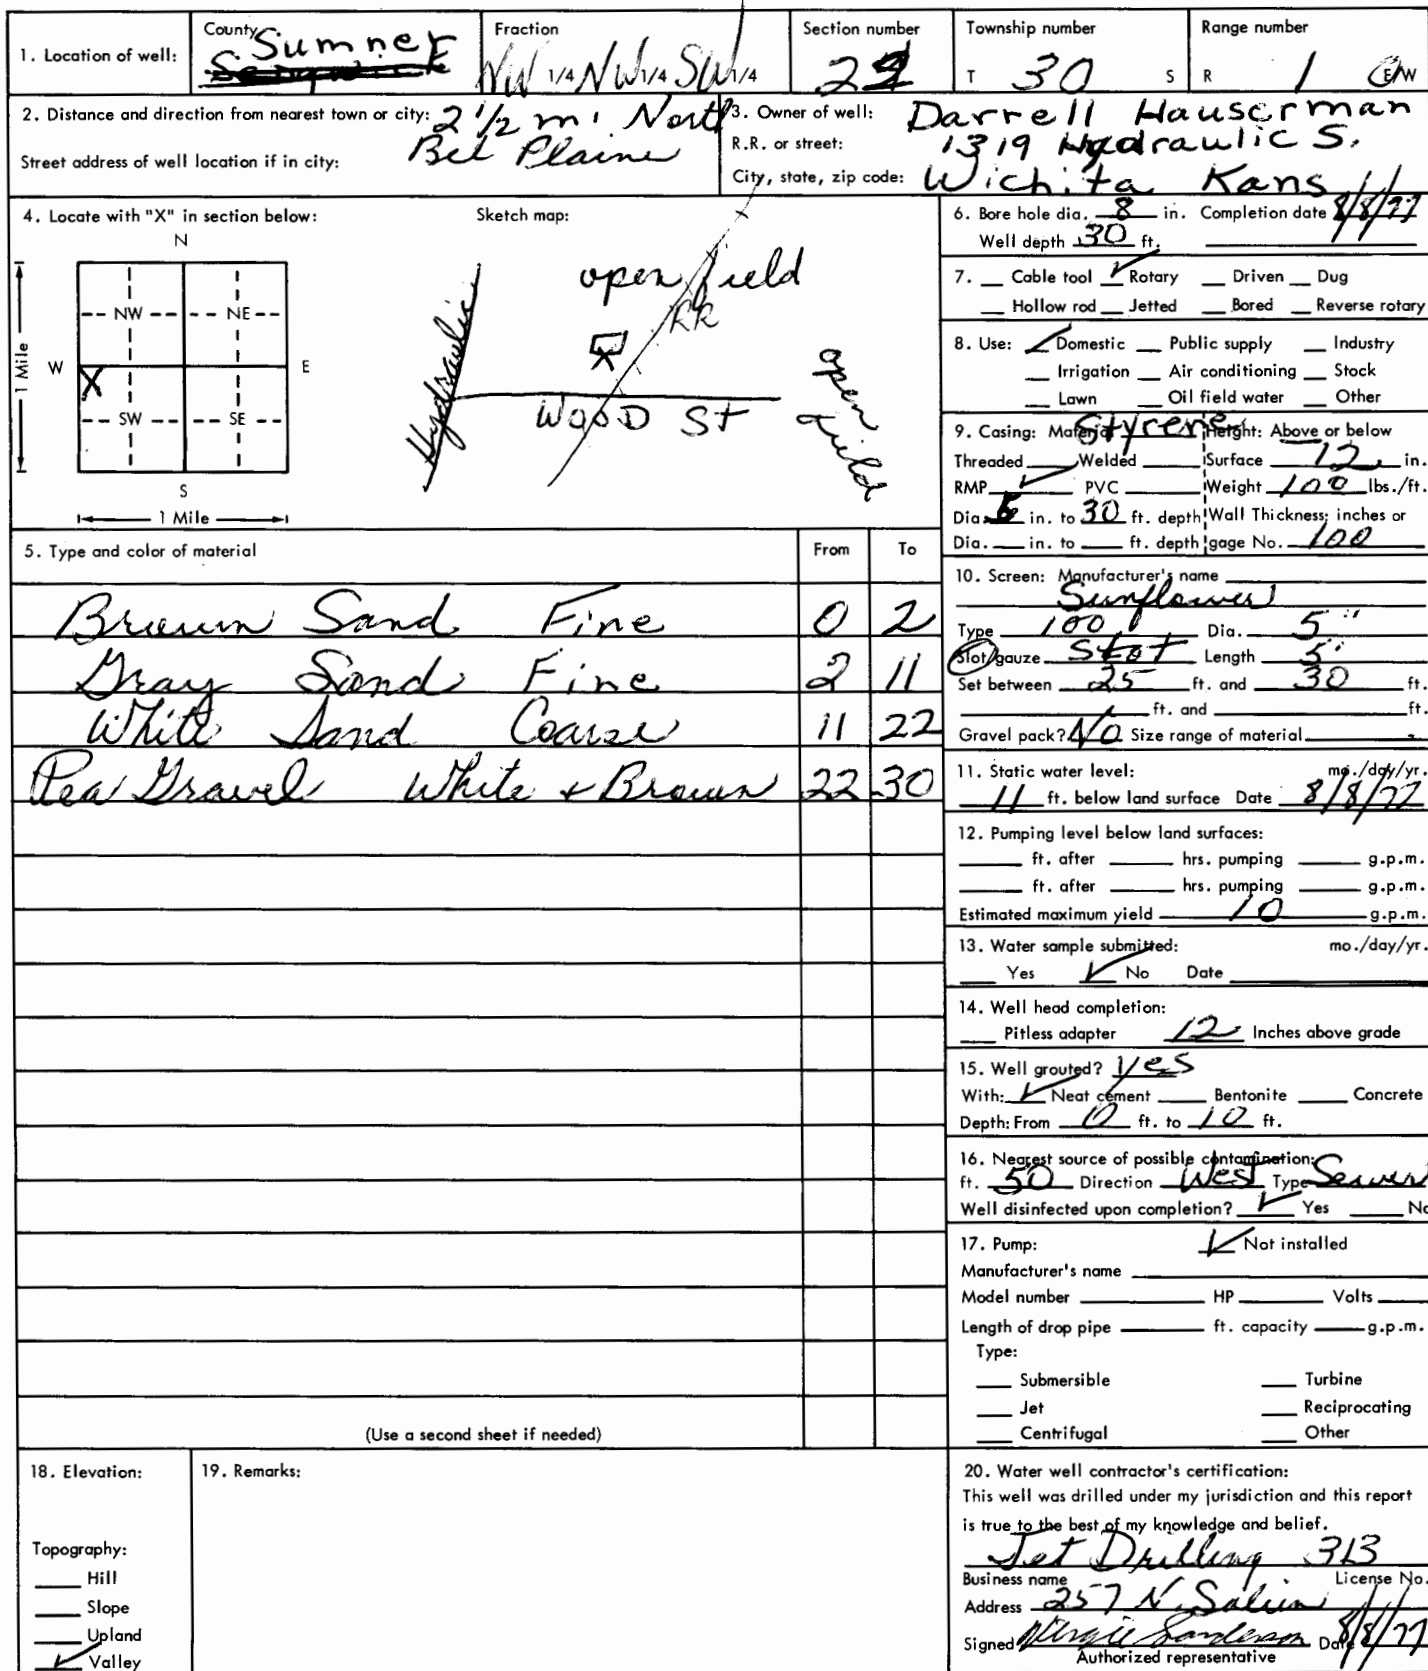 1. Location of well: County Sumner Fraction NW 1/4 NW 1/4 SW 1/4 Section number Township number T 30 S Range number R 1 E/W
2. Distance and direction from nearest town or city: 2 1/2 mi North
Bel Plaine
Street address of well location if in city:
3. Owner of well: Darrell Hauserman
R.R. or street: 1319 Hydraulic S.
City, state, zip code: Wichita Kans
4. Locate with "X" in section below:
N
NW NE
W E
X
SW SE
S
1 Mile
1 Mile
Sketch map:
open field
RR
Hydraulic
X
WOOD St
open field
5. Type and color of material From To
Brown Sand Fine 0 2
Gray Sand Fine 2 11
White Sand Coarse 11 22
Pea Gravel White + Brown 22 30
(Use a second sheet if needed)
6. Bore hole dia. 8 in. Completion date 8/8/77
Well depth 30 ft.
7. Cable tool Rotary Driven Dug
Hollow rod Jetted Bored Reverse rotary
8. Use: Domestic Public supply Industry
Irrigation Air conditioning Stock
Lawn Oil field water Other
9. Casing: Material Styrene Height: Above or below
Threaded Welded Surface 12 in.
RMP PVC Weight 100 lbs./ft.
Dia. in. to 30 ft. depth Wall Thickness: inches or
Dia. in. to ft. depth gage No. 100
10. Screen: Manufacturer's name
Sunflower
Type 100 Dia. 5"
Slot/gauze Slot Length 5'
Set between 25 ft. and 30 ft.
ft. and ft.
Gravel pack? No Size range of material
11. Static water level: mo./day/yr.
11 ft. below land surface Date 8/8/77
12. Pumping level below land surfaces:
ft. after hrs. pumping g.p.m.
ft. after hrs. pumping g.p.m.
Estimated maximum yield 10 g.p.m.
13. Water sample submitted: mo./day/yr.
Yes No Date
14. Well head completion:
Pitless adapter 12 Inches above grade
15. Well grouted? Yes
With: Neat cement Bentonite Concrete
Depth: From 0 ft. to 10 ft.
16. Nearest source of possible contamination:
ft. 50 Direction West Type Sewer
Well disinfected upon completion? Yes No
17. Pump: Not installed
Manufacturer's name
Model number HP Volts
Length of drop pipe ft. capacity g.p.m.
Type:
Submersible Turbine
Jet Reciprocating
Centrifugal Other
18. Elevation:
Topography:
Hill
Slope
Upland
Valley
19. Remarks:
20. Water well contractor's certification:
This well was drilled under my jurisdiction and this report
is true to the best of my knowledge and belief.
Jet Drilling 313
Business name License No.
Address 257 N.
Signed Sanderson Date 8/8/77
Authorized representative